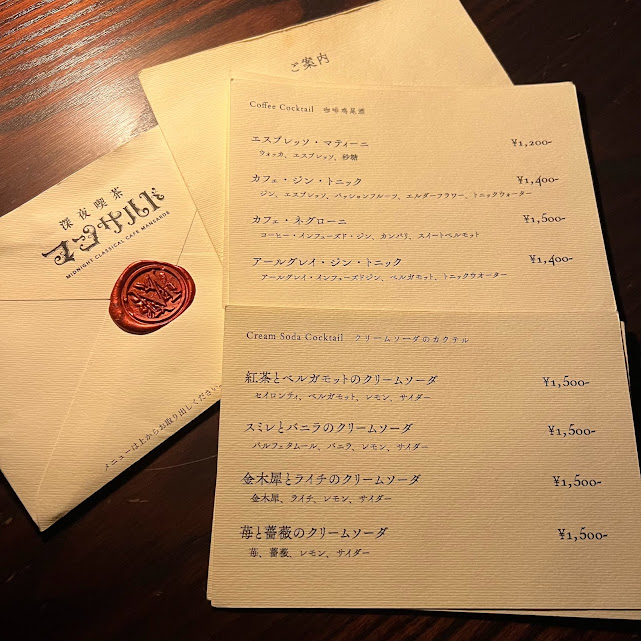 ご案内
深夜喫茶
マンサルド
MIDNIGHT CLASSICAL CAFE MANSARDE
メニューは上からお取り出しください。
Coffee Cocktail 珈琲鶏尾酒
エスプレッソ・マティーニ ¥1,200-
ウォッカ、エスプレッソ、砂糖
カフェ・ジン・トニック ¥1,400-
ジン、エスプレッソ、パッションフルーツ、エルダーフラワー、トニックウォーター
カフェ・ネグローニ ¥1,500-
コーヒー・インフューズド・ジン、カンパリ、スイートベルモット
アールグレイ・ジン・トニック ¥1,400-
アールグレイ・インフューズドジン、ベルガモット、トニックウオーター
Cream Soda Cocktail クリームソーダのカクテル
紅茶とベルガモットのクリームソーダ ¥1,500-
セイロンティ、ベルガモット、レモン、サイダー
スミレとバニラのクリームソーダ ¥1,500-
パルフェタムール、バニラ、レモン、サイダー
金木犀とライチのクリームソーダ ¥1,500-
金木犀、ライチ、レモン、サイダー
苺と薔薇のクリームソーダ ¥1,500-
苺、薔薇、レモン、サイダー